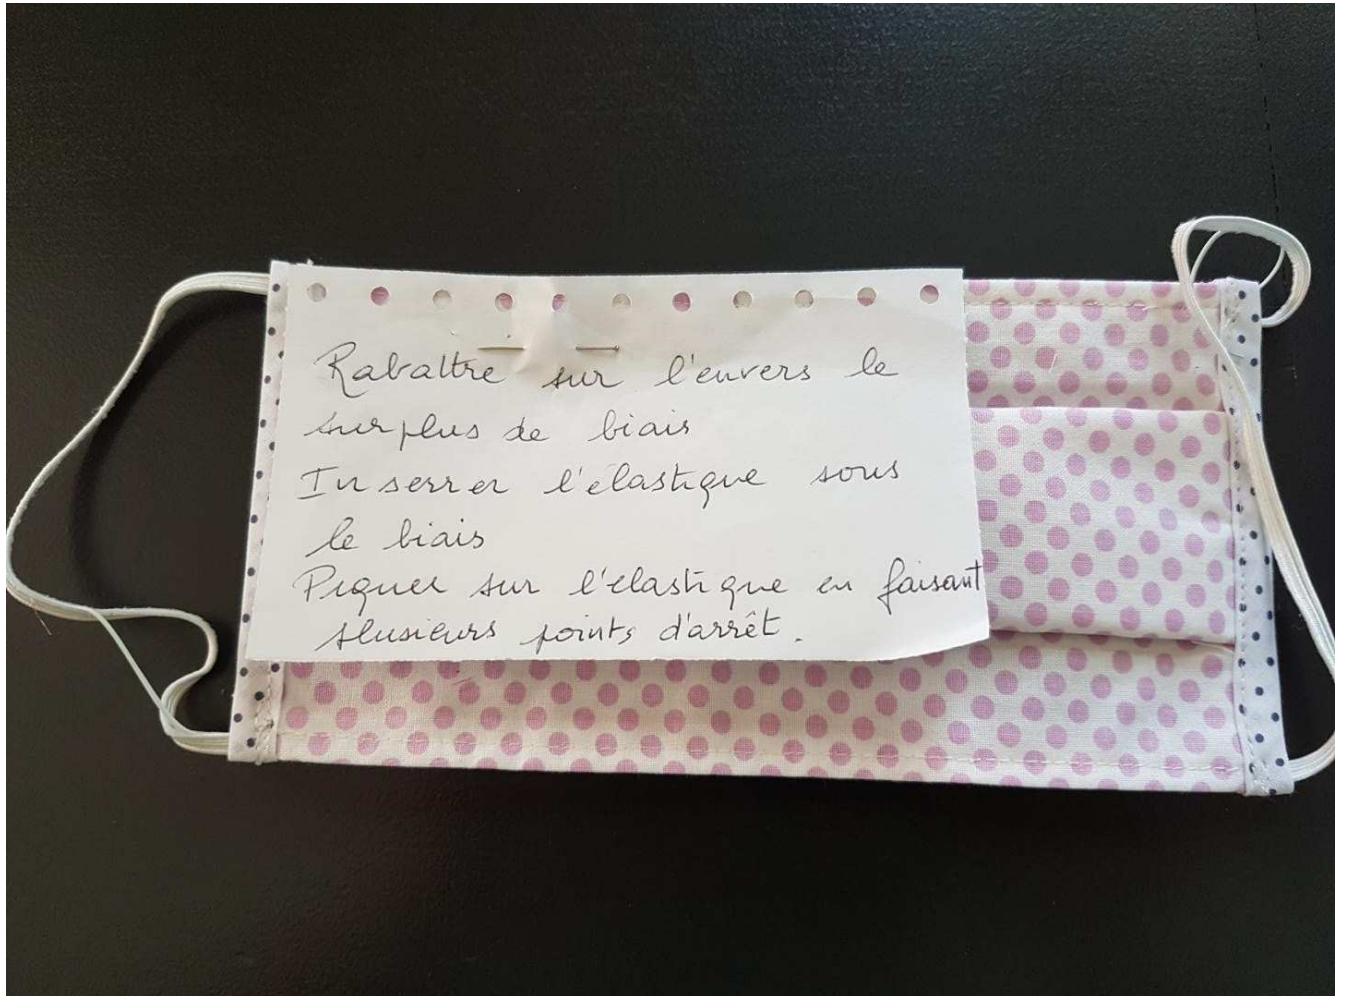 Rabattre sur l'envers le
surplus de biais
Inserrer l'élastique sous
le biais
Piquer sur l'elastique en faisant
plusieurs points d'arrêt.